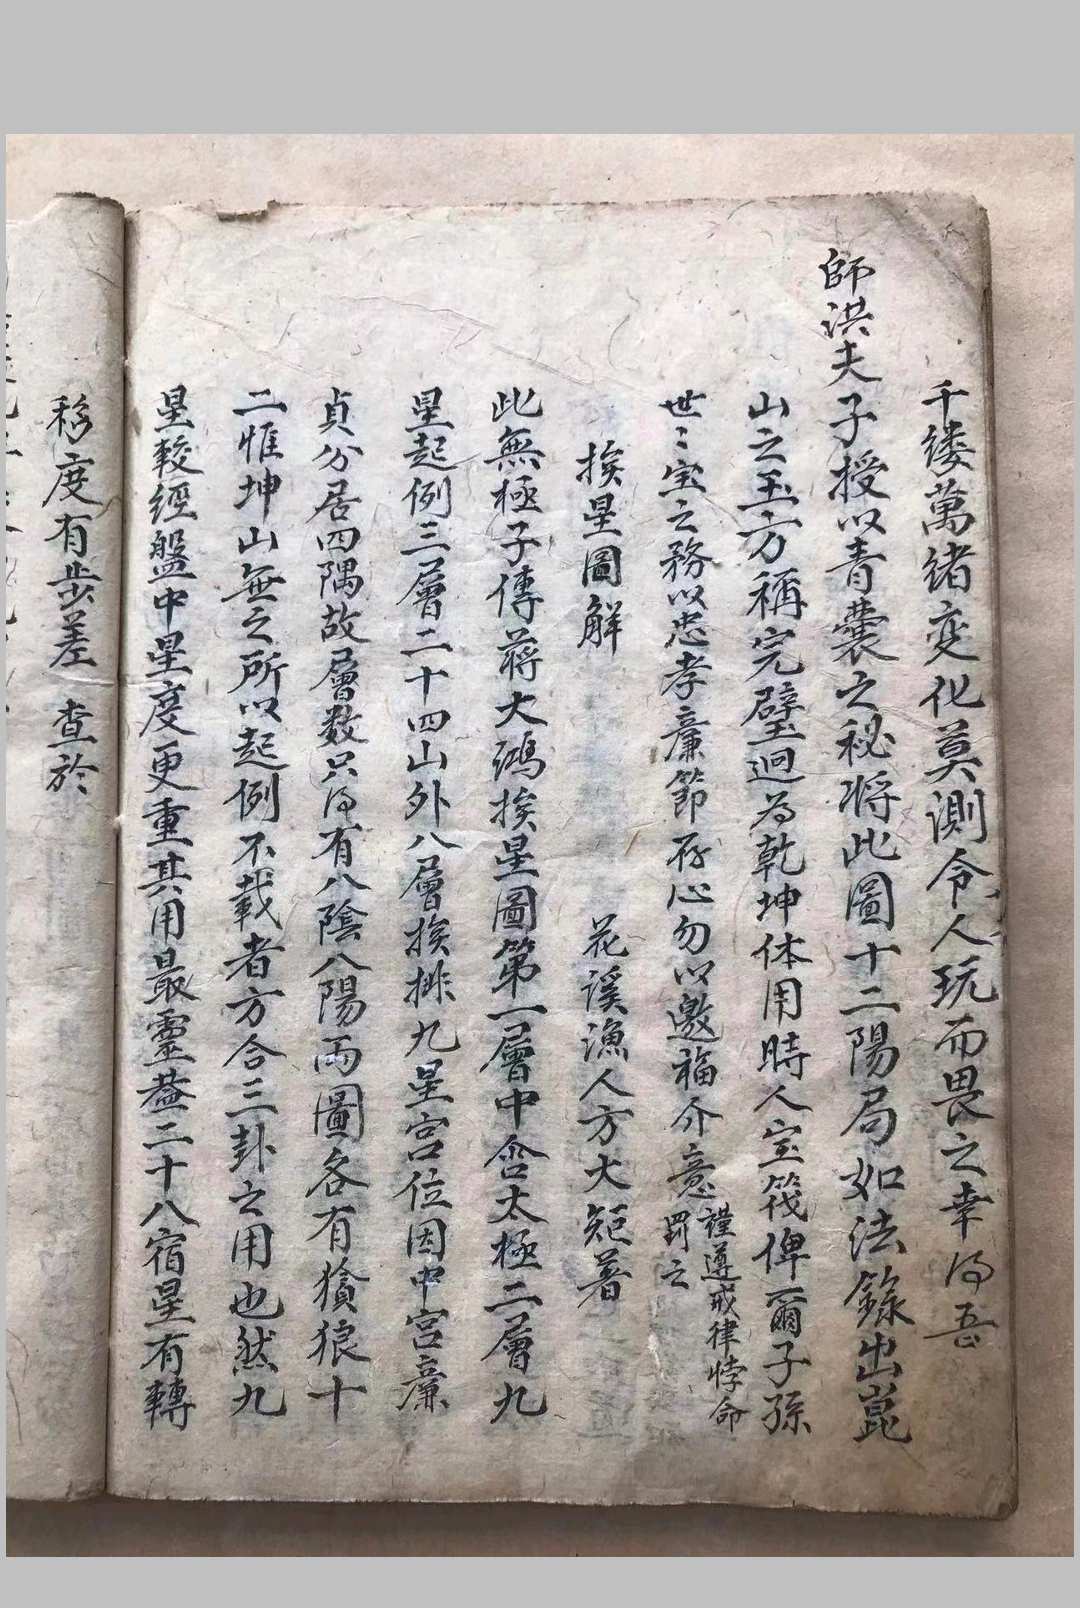 千縷萬緒變化莫測令人玩而畏之幸得吾
師洪夫子授以青囊之秘將此圖十二陽局如法錄出崑
山之玉方稱完璧迴為乾坤体用時人宝筏俾爾子孫
世〻宝之務以忠孝廉節存心勿以邀福介意謹遵戒律悖命
罰之
挨星圖解 花溪漁人方大矩著
此無極子傳蔣大鴻挨星圖第一層中含太極二層九
星起例三層二十四山外八層挨排九星宮位因中宮廉
貞分居四隅故層数只得有八陰八陽兩圖各有獖狼十
二惟坤山無之所以起例不載者方合三卦之用也然九
星較經盤中星度更重其用最靈蓋二十八宿星有轉
移度有步差 查於